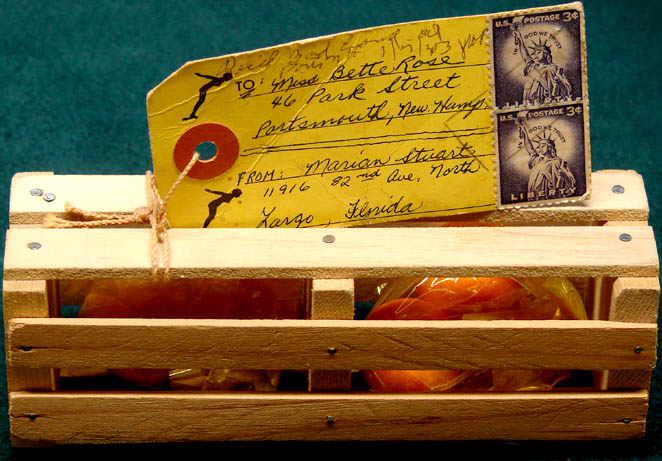 TO: Miss Bette Rose
46 Park Street
Portsmouth, New. Hamp.
FROM: Marian Stuart
11916 82nd Ave, North
Largo, Florida
U.S. POSTAGE 3¢
IN GOD WE TRUST
LIBERTY
U.S. POSTAGE 3¢
IN GOD WE TRUST
LIBERTY